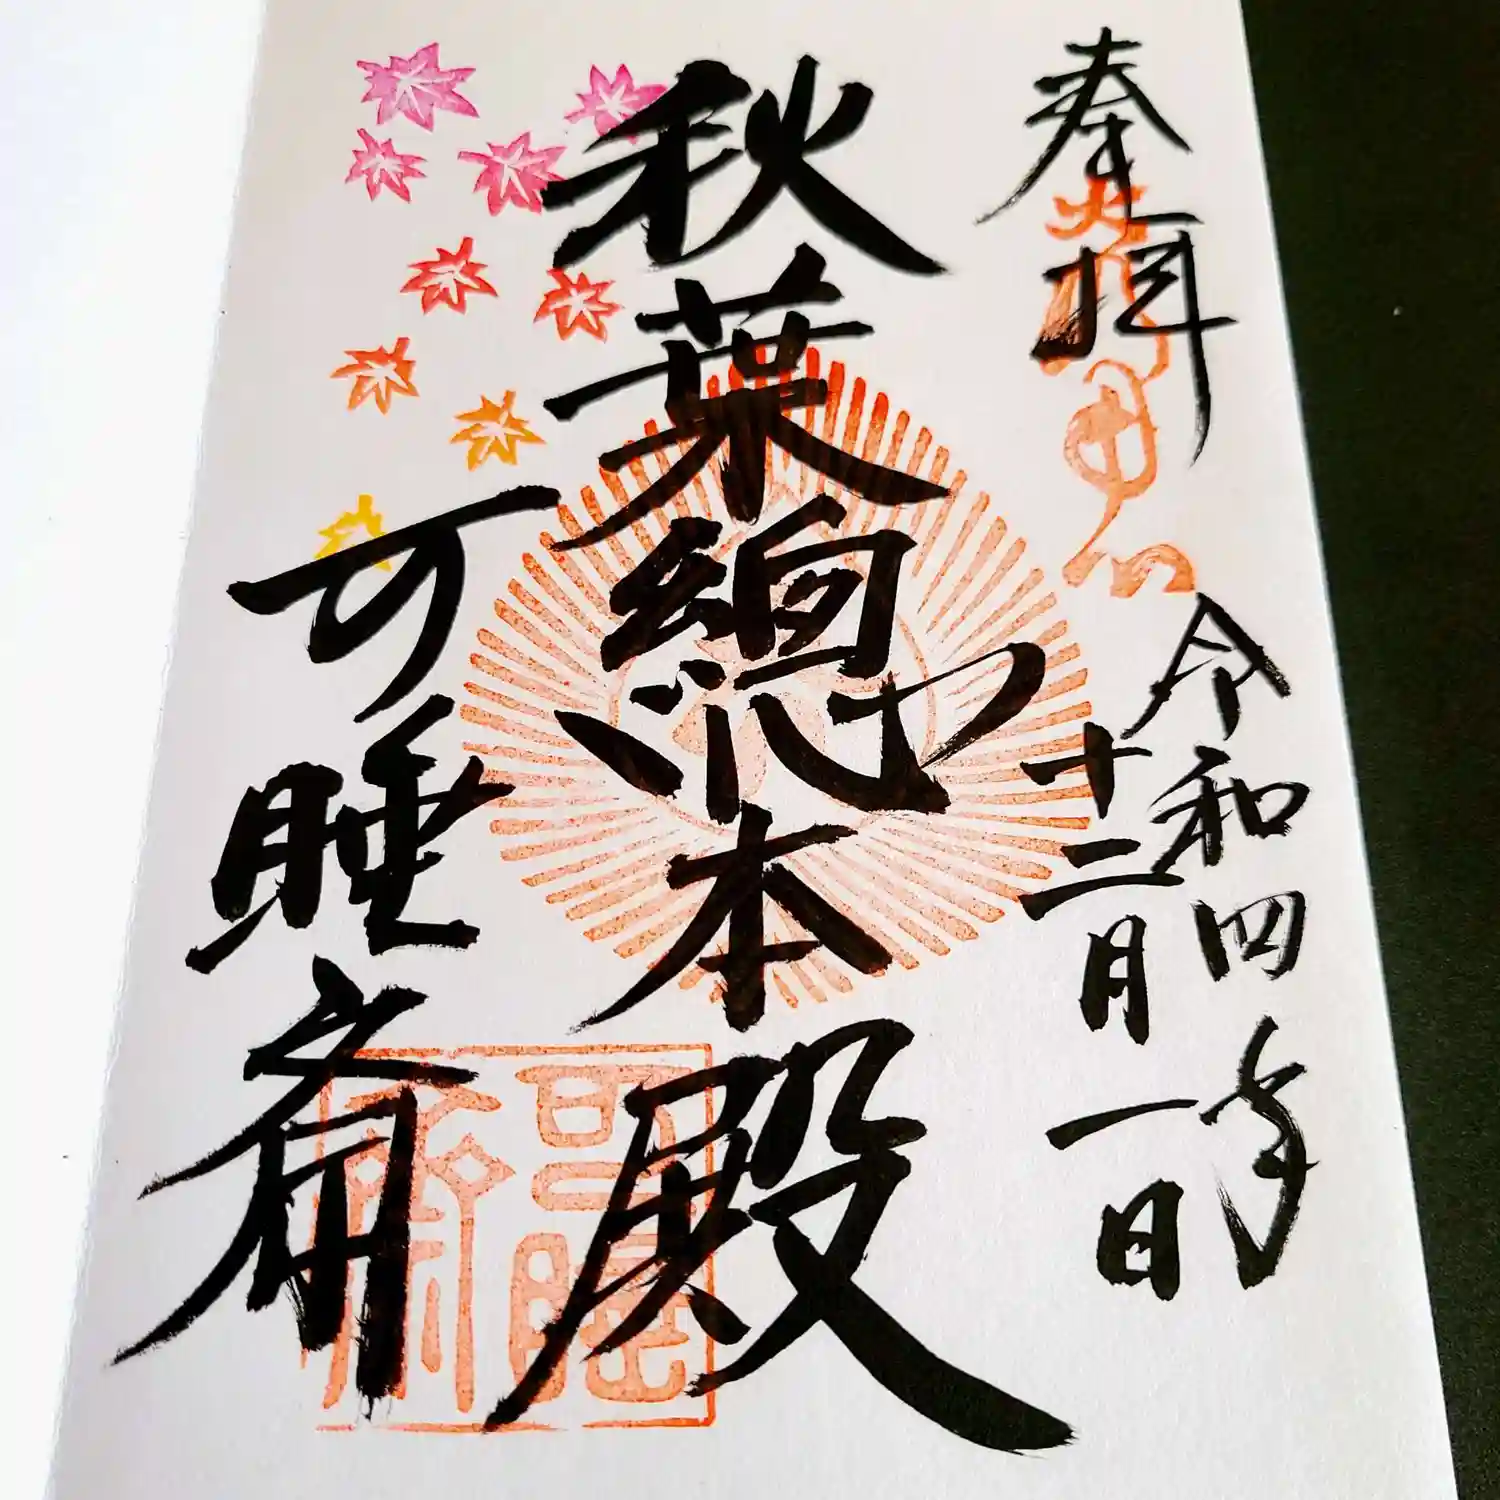 奉拝
令和四年
十二月一日
秋葉總本殿
可睡斎
可睡
斎